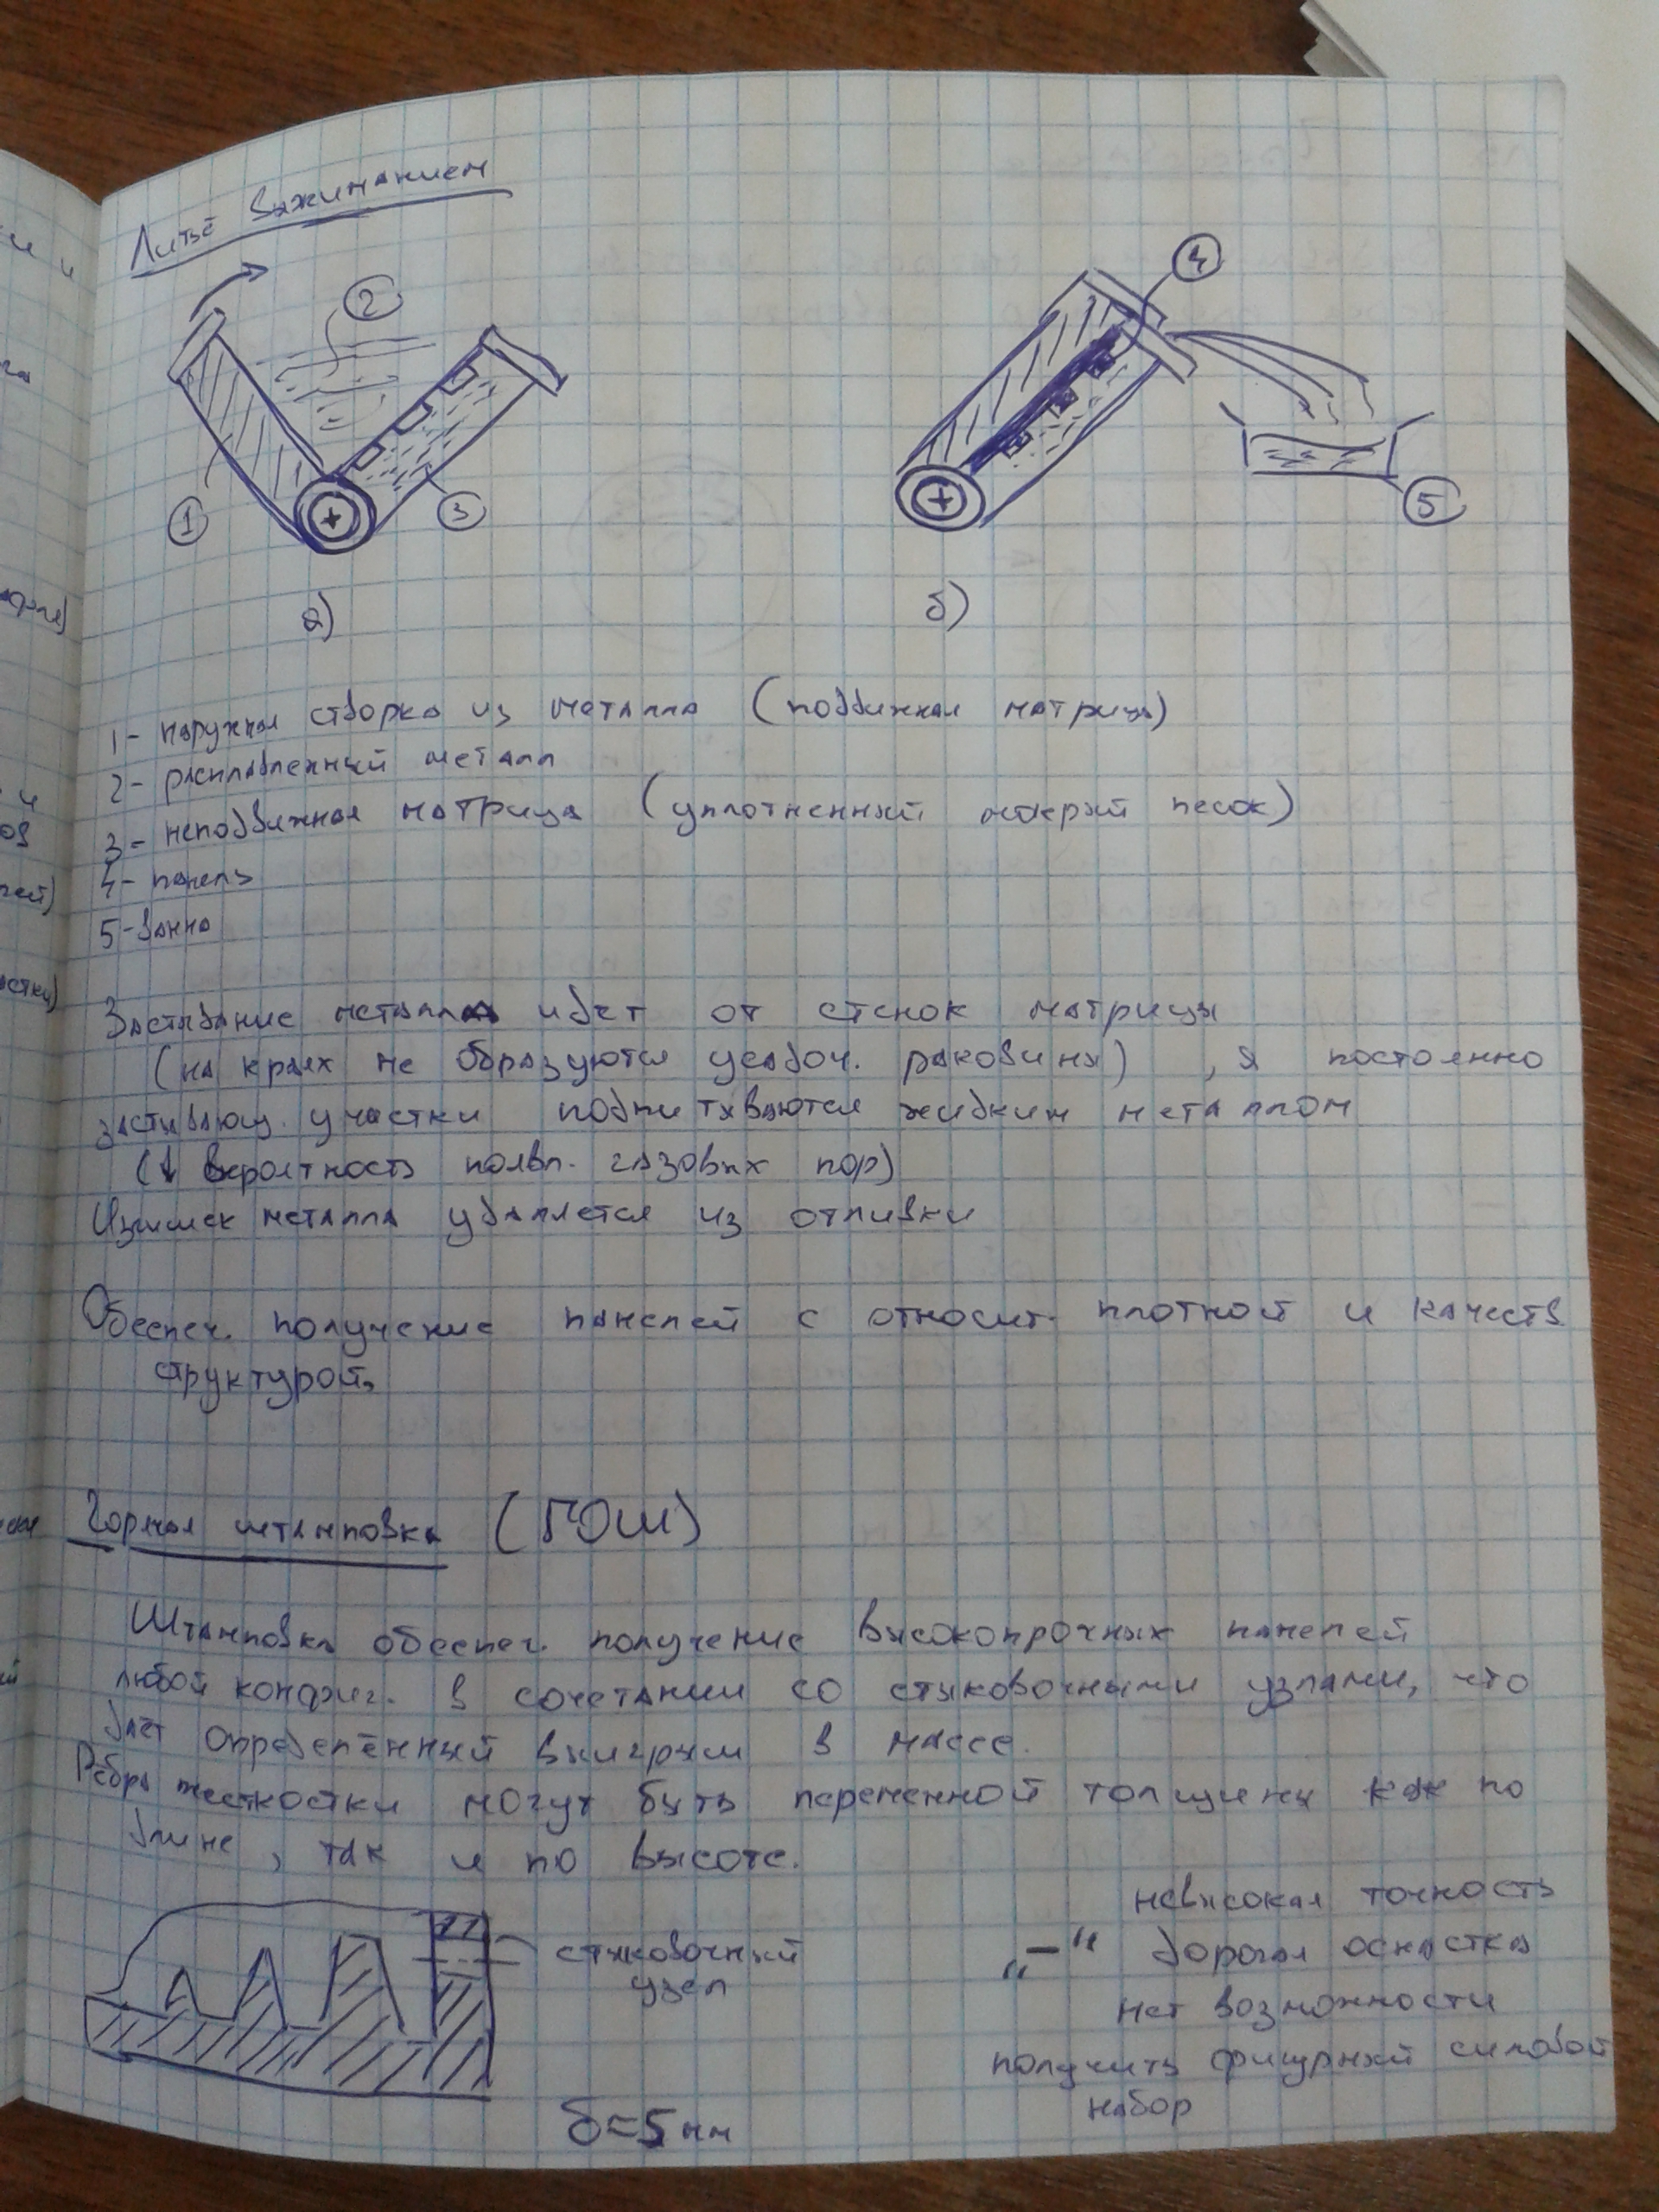 Литьё выжиманием
2
4
1
3
5
а)
б)
1- наружная створка из металла (подвижная матрица)
2- расплавленный металл
3- неподвижная матрица (уплотненный мокрый песок)
4- панель
5- ванна
Застывание металла идет от стенок матрицы
(на краях не образуются усадоч. раковины), а постоянно
застывающ. участки подпитываются жидким металлом
(↓ вероятность появл. газовых пор)
Излишек металла удаляется из отливки
Обеспеч. получение панелей с относит. плотной и качеств.
структурой.
Горячая штамповка (ГОШ)
Штамповка обеспеч. получение высокопрочных панелей
любой конфиг. в сочетании со стыковочными узлами, что
даёт определённый выигрыш в массе.
Рёбра жесткостки могут быть переменной толщины как по
длине, так и по высоте.
стыковочный
узел
δ=5мм
невысокая точность
„–“ дорогая оснастка
нет возможности
получить фигурный силовой
набор